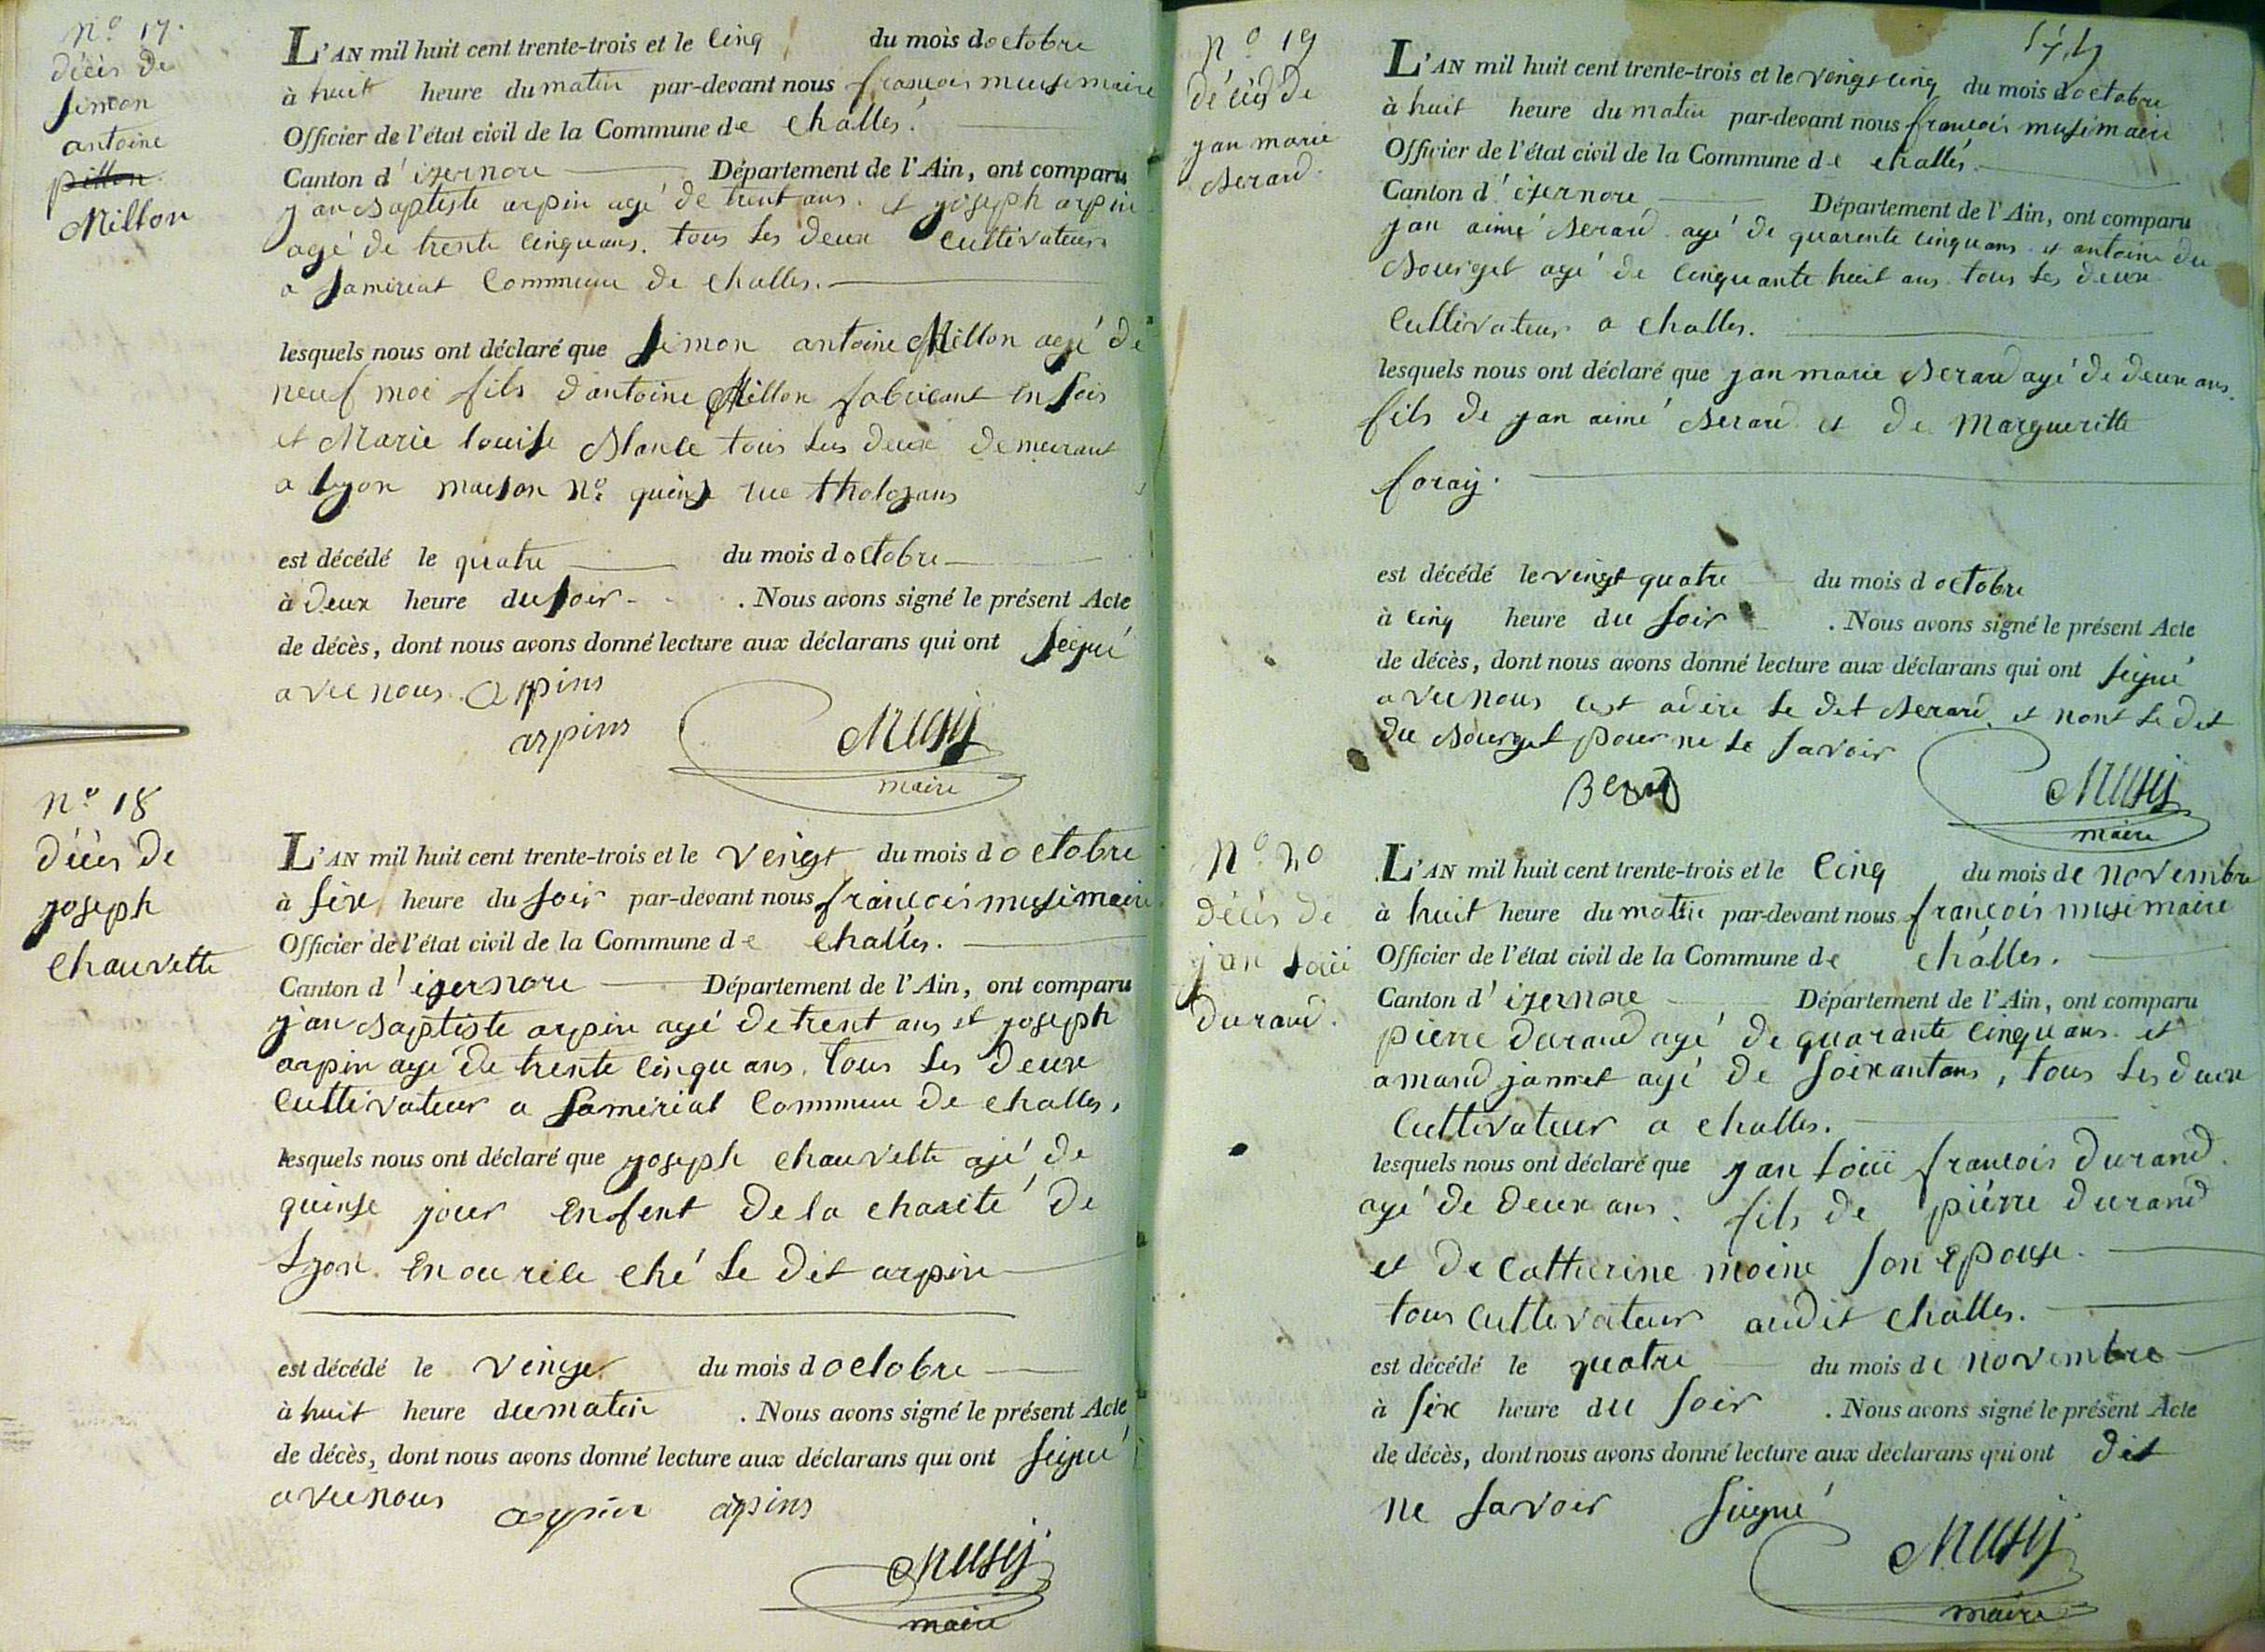 N.o 17.
décès de
simon
antoine
pillon
Millon
L'AN mil huit cent trente-trois et le cinq du mois doctobre
à huit heure du matin par-devant nous francois musi maire
Officier de l'état civil de la Commune de challes.
Canton d'izernore Département de l'Ain, ont comparu
jan Baptiste arpin agé de trent ans. et joseph arpin
agé de trente cinquans. tous les deux cultivateurs
a samiriat Commune de challes.
lesquels nous ont déclaré que simon antoine Millon agé de
neuf moi fils d'antoine Millon fabricant en sois
et Marie louise Blanle tous les deux demeurant
a lyon maison No quinse rue tholozans
est décédé le quatre du mois doctobre
à deux heure du soir. Nous avons signé le présent Acte
de décès, dont nous avons donné lecture aux déclarans qui ont seigné
avec nous. arpins
arpins Musy
maire
N.o 18
décès de
joseph
chauvette
L'AN mil huit cent trente-trois et le vengt du mois doctobre
à six heure du soir par-devant nous francois musi maire
Officier de l'état civil de la Commune de challes.
Canton d'izernore Département de l'Ain, ont comparu
jan Baptiste arpin agé de trent ans et joseph
arpin agé de trente cinqu ans. tous les deux
Cultivateur a samiriat Commune de challes,
lesquels nous ont déclaré que joseph chauvette agé de
quinse jour enfent de la charité de
Lyon. en ourile ché le dit arpin
est décédé le venge du mois doctobre
à huit heure du matin. Nous avons signé le présent Acte
de décès, dont nous avons donné lecture aux déclarans qui ont seigné
avec nous arpin arpins
Musy
maire
No 19
décès de
jan marie
Berard.
L'AN mil huit cent trente-trois et le vengt cinq du mois doctobre
à huit heure du matin par-devant nous francois musi maire
Officier de l'état civil de la Commune de challés.
Canton d'izernore Département de l'Ain, ont comparu
jan aimé Berard agé de quarente cinquans et antoine du
Bourget agé de cinquante huit ans tous les deux
Cultivateur a challes.
lesquels nous ont déclaré que jan marie Berard agé de deux ans.
fils de jan aimé Berard et de Margueritte
foray.
est décédé le vengt quatre du mois doctobre
à cinq heure du soir. Nous avons signé le présent Acte
de décès, dont nous avons donné lecture aux déclarans qui ont seigné
avec nous cest adire le dit Berard. et nont le dit
du Bourget pour ne le savoir
Berard Musy
maire
No 20
décès de
jan Louii
durand.
L'AN mil huit cent trente-trois et le Cinq du mois de novembre
à huit heure du matin par-devant nous francois musi maire
Officier de l'état civil de la Commune de challes.
Canton d'izernore Département de l'Ain, ont comparu
pierre durand agé de quarante cinqu ans. et
amand jannet agé de soixantans, tous les deux
Cultivateur a challes.
lesquels nous ont déclaré que jan Louii francois durand.
agé de deux ans. fils de piérre durand
et de Catherine moine son epouse.
tous Cultivateur audit challes.
est décédé le quatre du mois de novembre
à six heure du soir. Nous avons signé le présent Acte
de décès, dont nous avons donné lecture aux déclarans qui ont dit
ne savoir seigné
Musy
maire